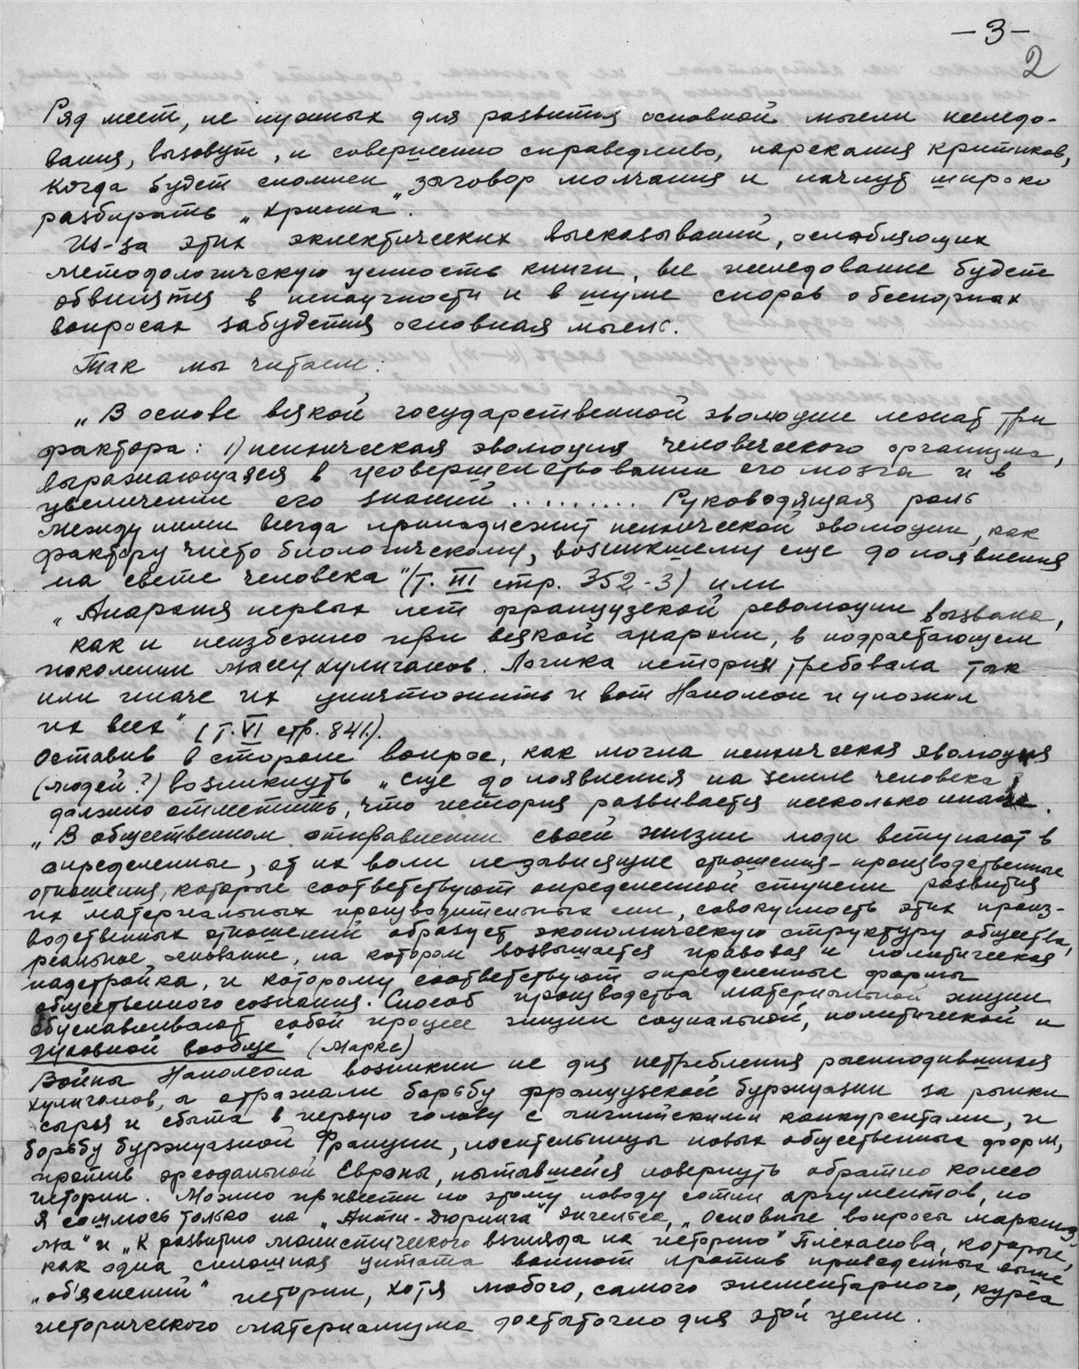 —3—
2
Ряд мест, не нужных для развития основной мысли исследо-
вания, вызовут, и совершенно справедливо, нарекания критиков,
когда будет сломлен „заговор молчания и начнут широко
разбирать „Христа".
Из-за этих эклектических высказываний, ослабляющих
методологическую ценность книги, все исследование будет
обвинятся в ненаучности и в шуме споров о бесспорных
вопросах забудется основная мысль.
Так мы читаем:
„В основе всякой государственной эволюции лежат три
фактора: 1) психическая эволюция человеческого организма,
выражающаяся в усовершенствовании его мозга и в
увеличении его знаний ......... Руководящая роль
между ними всегда принадлежит психической эволюции, как
фактору чисто биологическому, возникшему еще до появления
на свете человека" (т. III стр. 352-3) или
„Анархия первых лет французской революции вызвала,
как и неизбежно при всякой анархии, в подрастающем
поколении массу хулиганов. Логика истории требовала так
или иначе их уничтожить и вот Наполеон и уложил
их всех" (т. VI стр. 841.).
Оставив в стороне вопрос, как могла психическая эволюция
(людей?) возникнуть „еще до появления на земле человека"
должно отметить, что история развивается несколько иначе.
„В общественном отправлении своей жизни люди вступают в
определенные, от их воли независящие отношения - производственные
отношения, которые соответствуют определенной ступени развития
их материальных производительных сил, совокупность этих произ-
водственных отношений образует экономическую структуру общества,
реальное основание, на котором возвышается правовая и политическая
надстройка, и которому соответствуют определенные формы
общественного сознания. Способ производства материальной жизни
обуславливают собой процесс жизни социальной, политической и
духовной вообще" (Маркс)
Войны Наполеона возникли не для истребления расплодившихся
хулиганов, а отражали борьбу французской буржуазии за рынки
сырья и сбыта в первую голову с английскими конкурентами, и
борьбу буржуазной Франции, носительницы новых общественных форм,
против феодальной Европы, пытавшейся повернуть обратно колесо
истории. Можно привести по этому поводу сотни аргументов, но
я сошлюсь только на „Анти-Дюринга" Энгельса, „Основные вопросы марксиз
ма" и „К развитию монистического взгляда на историю" Плеханова, которые,
как одна сплошная цитата вопиют против приведенных выше
„об'яснений" истории, хотя любого, самого элементарного, курса
исторического материализма достаточно для этой цели.